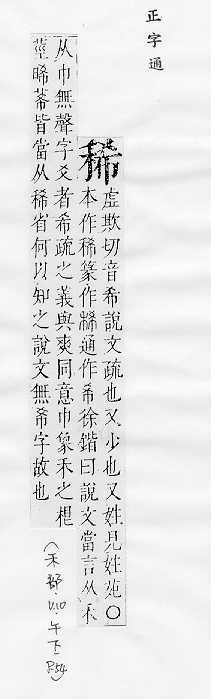 正字通
稀
虛欺切音希說文疏也又少也又姓見姓苑〇
本作稀篆作通作希徐鍇曰說文當言从禾
从巾無聲字爻者希疏之義與爽同意巾象禾之根
莖晞莃皆當从稀省何以知之說文無希字故也
(禾部.V10.午下 P54)